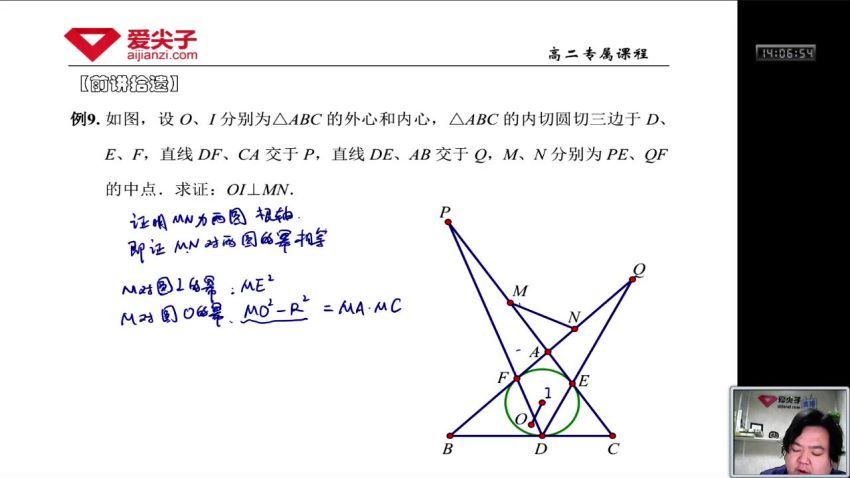 爱尖子
aijianzi.com
高二专属课程
14:06:54
【前讲拾遗】
例9. 如图，设 O、I 分别为△ABC 的外心和内心，△ABC 的内切圆切三边于 D、
E、F，直线 DF、CA 交于 P，直线 DE、AB 交于 Q，M、N 分别为 PE、QF
的中点．求证：OI⊥MN．
证明 MN为两圆 根轴.
即证 M,N 对两圆的幂相等
M对圆I的幂：ME²
M对圆O的幂、MO²-R² = MA·MC
P
Q
M
N
A
F
E
I
O
B
D
C
爱尖子